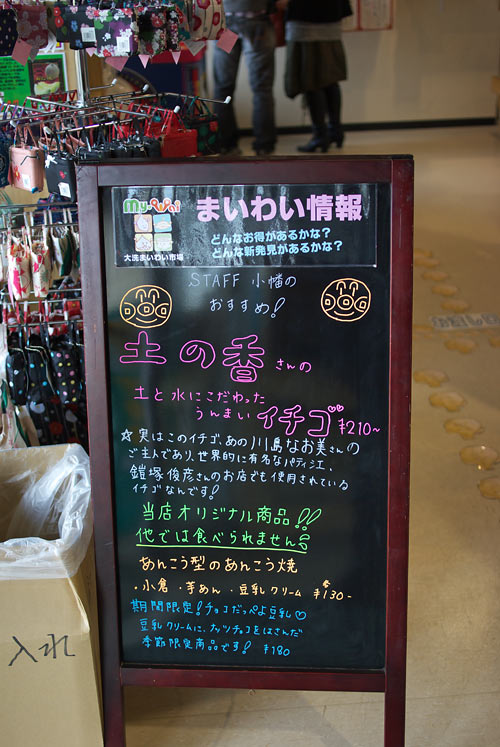 my-Wai
まいわい情報
大洗まいわい市場
どんなお得があるかな?
どんな新発見があるかな?
STAFF 小幡の
おすすめ!
土の香さんの
土と水にこだわった
うんまい イチゴ ¥210~
☆実はこのイチゴ、あの川島なお美さんの
ご主人であり、世界的に有名なパティシエ、
鎧塚俊彦さんのお店でも使用されている
イチゴなんです!
当店オリジナル商品!!
他では食べられません!
あんこう型のあんこう焼
・小倉 ・芋あん ・豆乳クリーム 各¥130-
期間限定!チョコだっぺよ豆乳♡
豆乳クリームに、ナッツチョコをはさんだ
季節限定商品です! ¥180
入れ